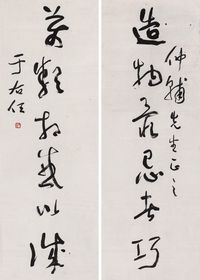 造物最忌者巧
仲辅先生正之
万类相感以诚
于右任